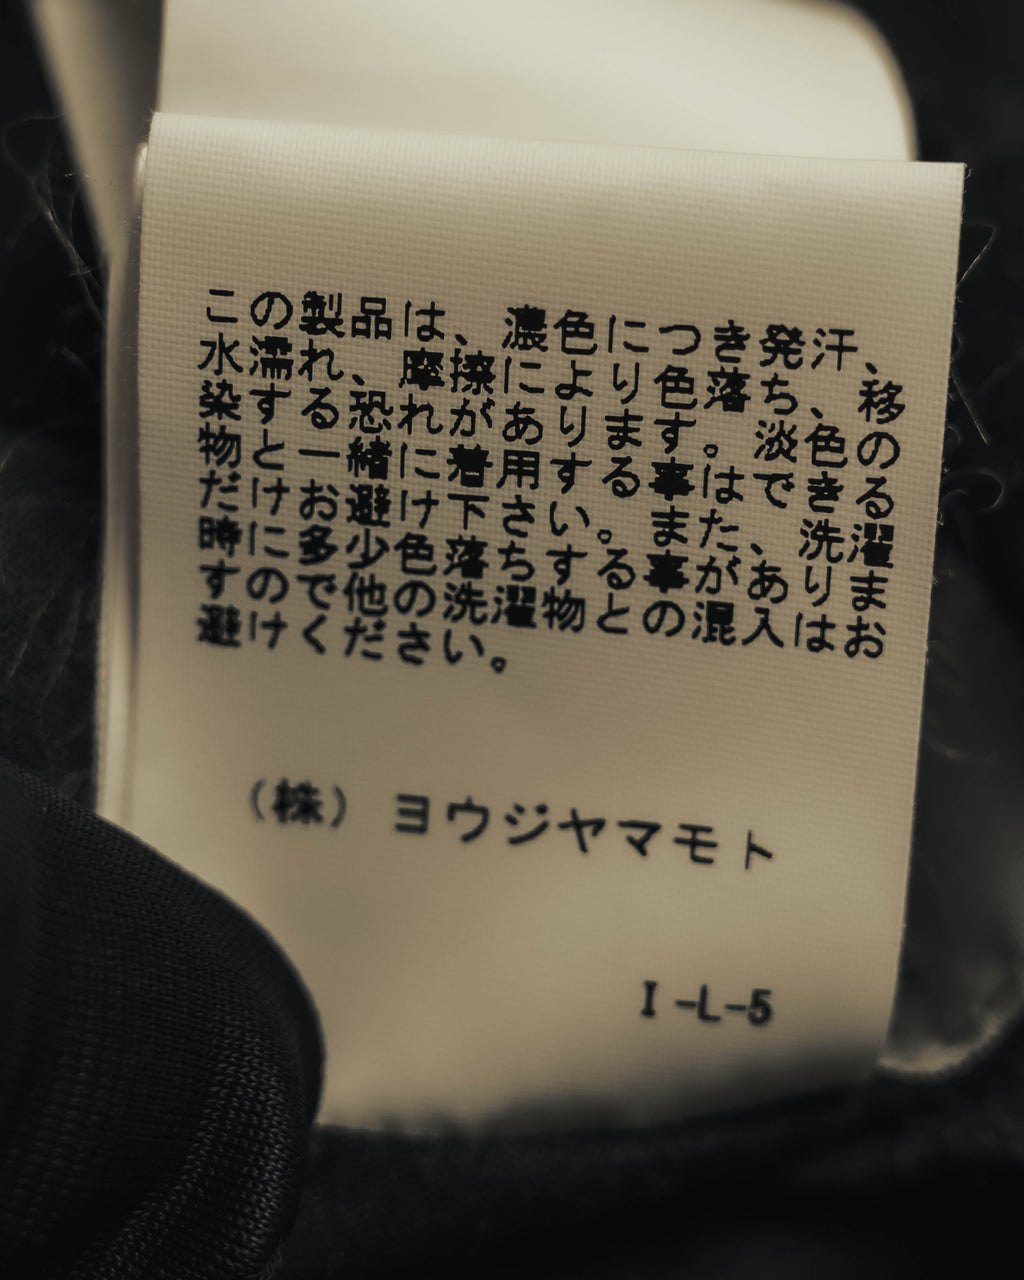 この製品は、濃色につき発汗、
水濡れ、摩擦により色落ち、移
染する恐れがあります。淡色の
物と一緒に着用する事はできる
だけお避け下さい。また、洗濯
時に多少色落ちする事がありま
すので他の洗濯物との混入はお
避けください。
(株) ヨウジヤマモト
I-L-5